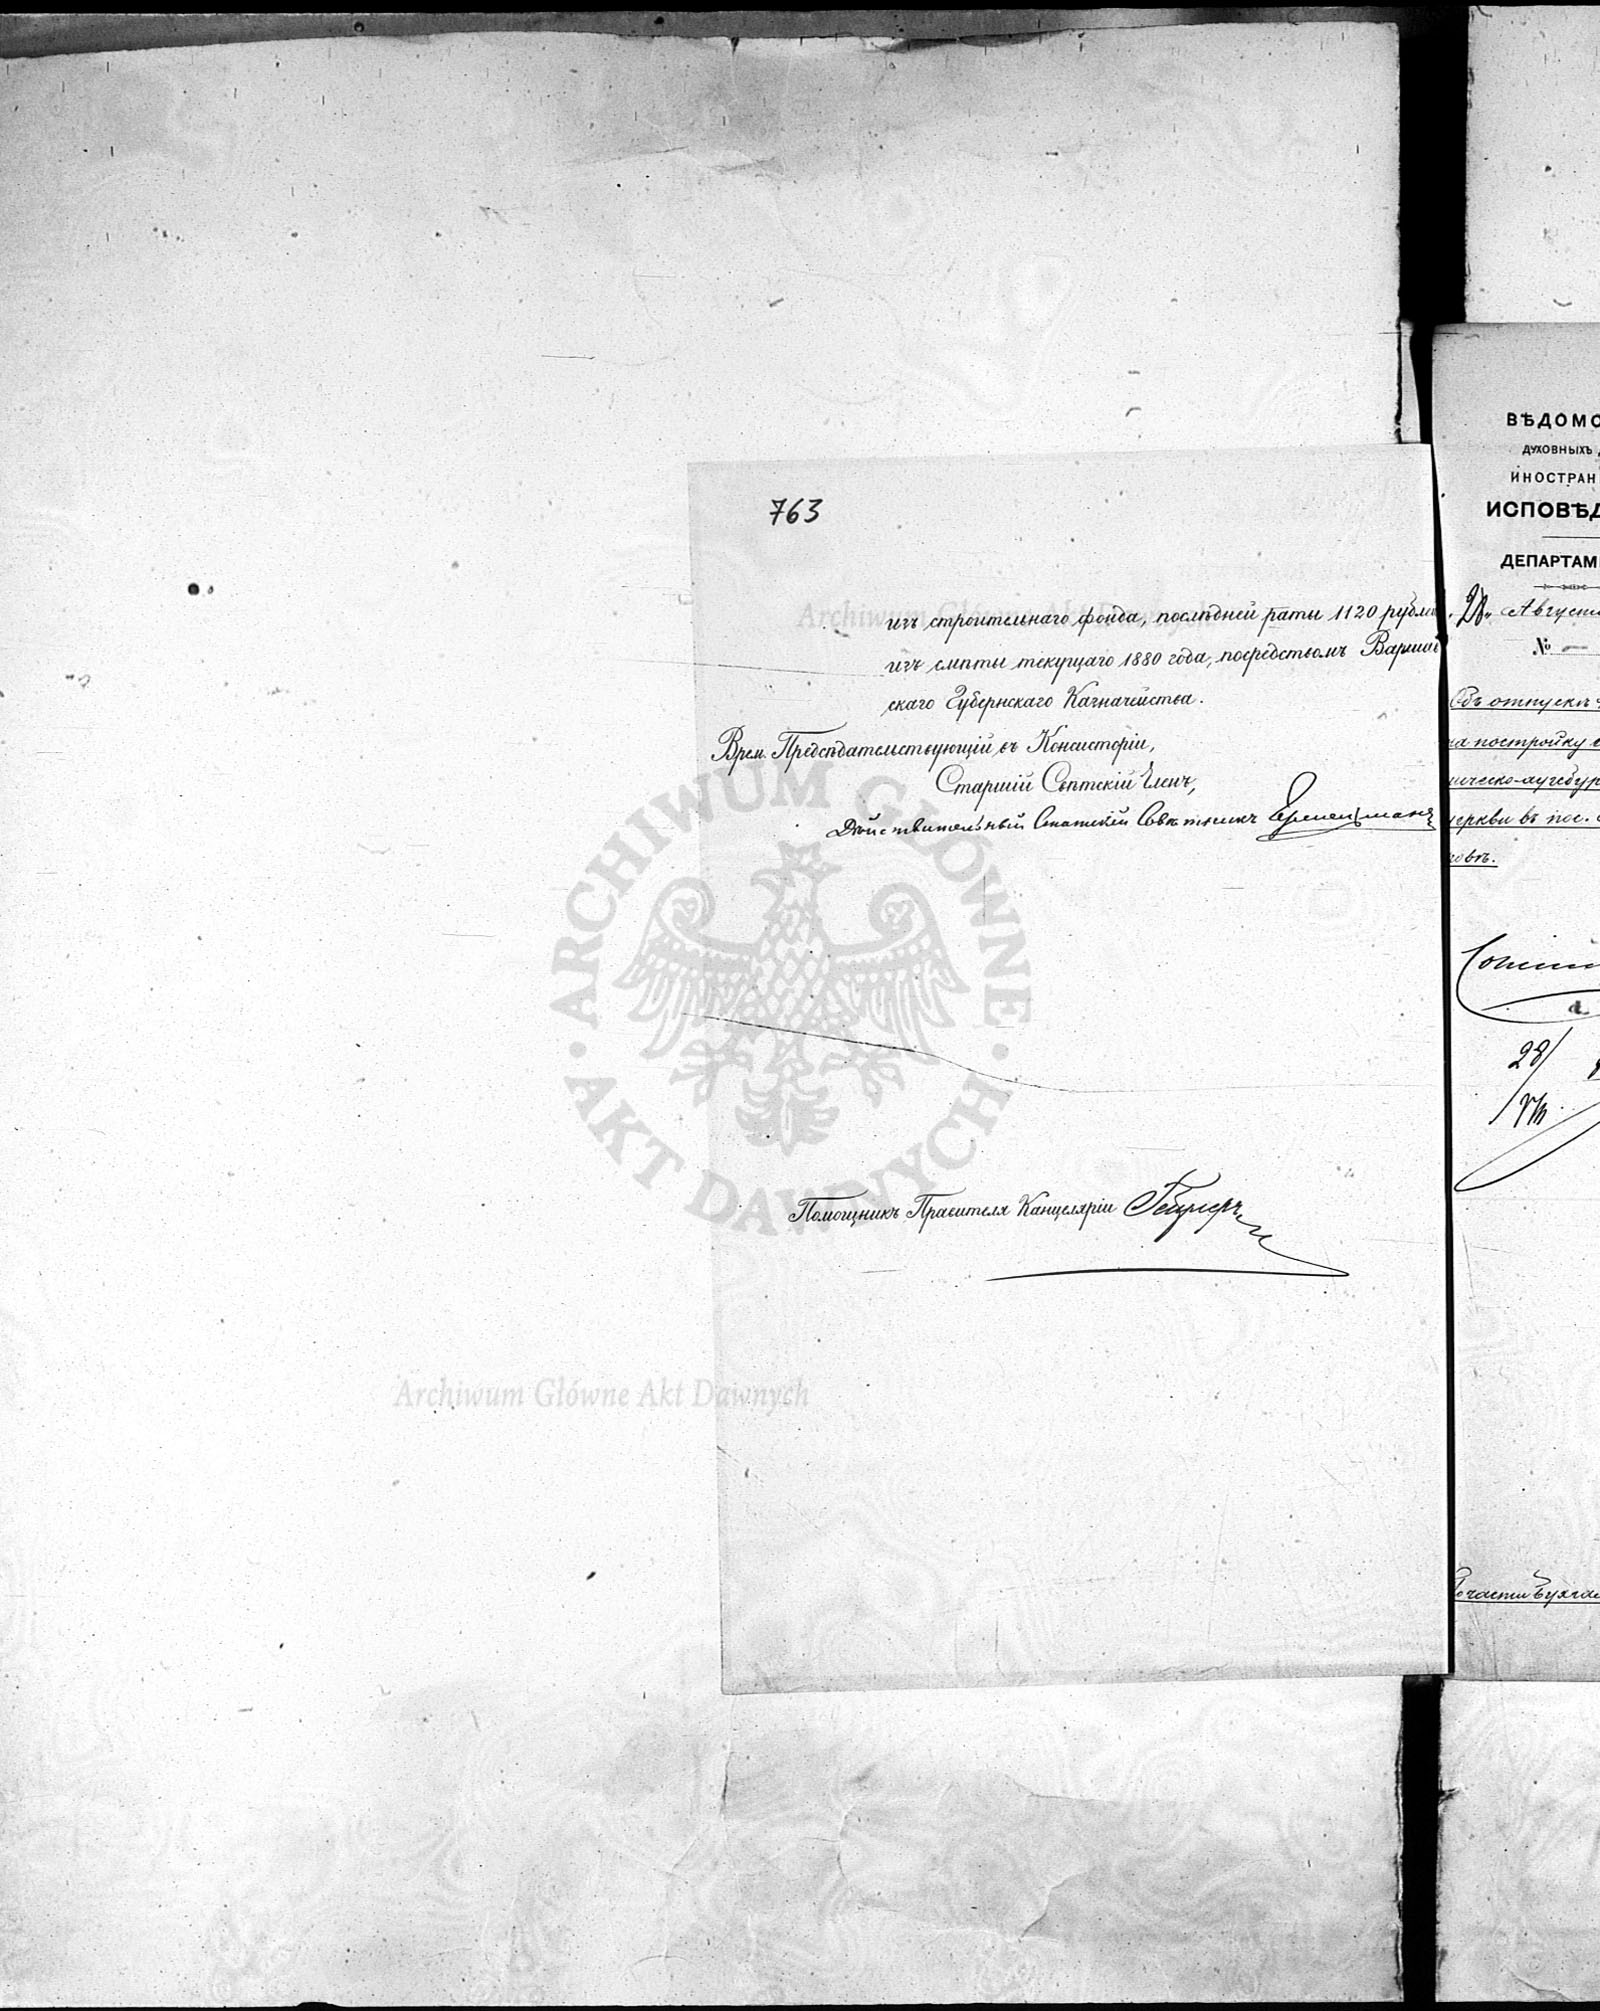 763
изъ строительнаго фонда, послѣдней раты 1120 рубле
изъ смѣты текущаго 1880 года, посредствомъ Варшав
скаго Губернскаго Казначейства.
Врем. Предсѣдательствующій въ Консисторіи,
Старшій Свѣтскій Членъ,
Дѣйствительный Статскій Совѣтникъ
Помощникъ Правителя Канцеляріи
Archiwum Główne Akt Dawnych
ARCHIWUM GŁÓWNE
AKT DAWNYCH
Archiwum Główne Akt Dawnych
ВѢДОМО
ДУХОВНЫХЪ
ИНОСТРАН
ИСПОВѢД
ДЕПАРТАМ
28 Августа
№
Объ отпускѣ
на постройку
ическо-аугсбур
церкви въ пос.
ховѣ.
28/VIII